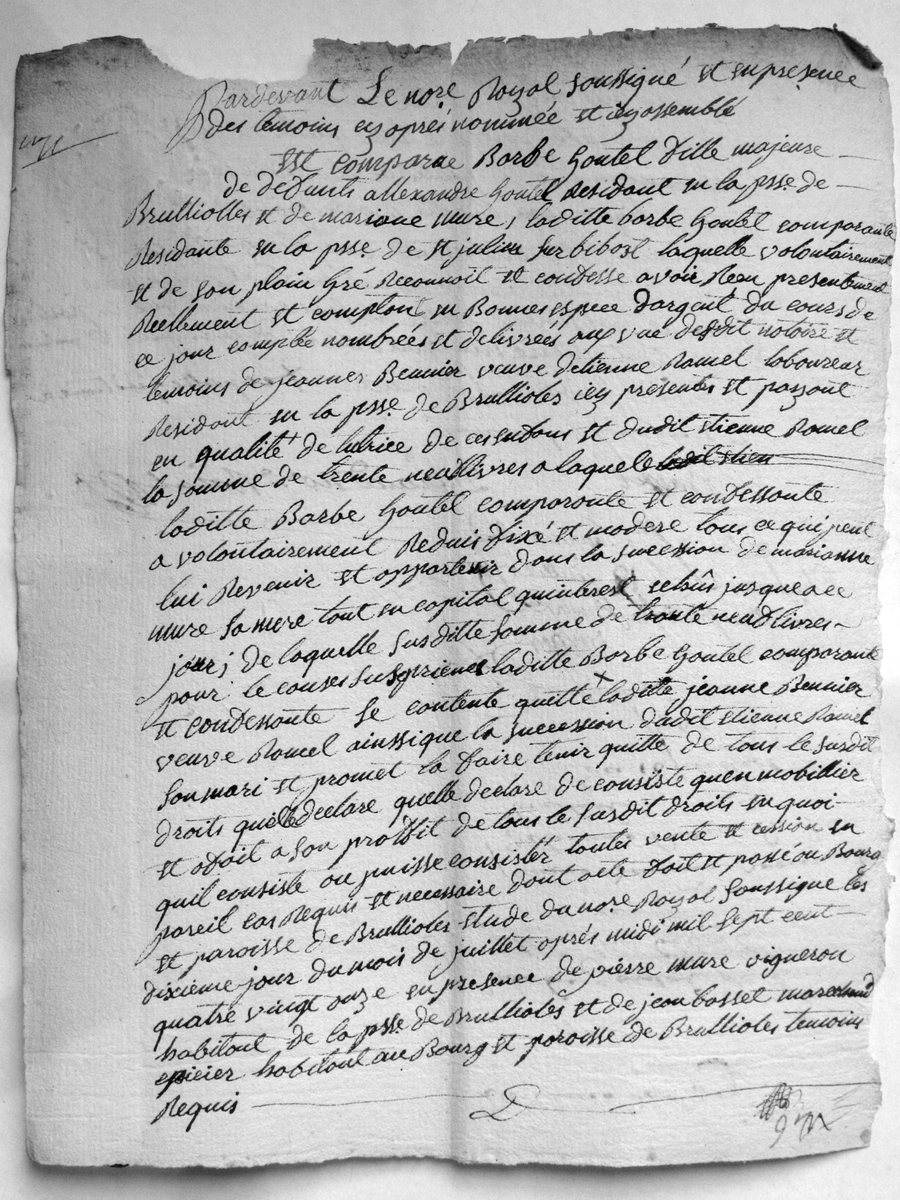 Pardevant Le nore Royal soussigné et en presence
des temoins cy aprés nommée et cy assemblé
est comparue Barbe Goutel fille majeure
de deffunts allexandre Goutel Residant en la psse de
Brulliolles et de mariane mure, laditte barbe Goutel comparante
Residante en la psse de st julien sur bibost laquelle volontairement
et de son plain Gré Reconnoit et confesse avoir Reçu presentement
Reellement et comptant en Bonnes espece d'argent du cours de
ce jour comptée nombrées et delivrées aux vue desdit notoire et
temoins de jeanne Bennier veuve detienne Ramel laboureur
Residant en la psse de Brullioles icy presentes et passant
en qualité de tutrice de ces enfans et dudit etienne Ramel
la somme de trente neuf livres a laquele
laditte Barbe Goutel comparante et confessante
a volontairement Reduis fixé et modere tous ce qui peut
lui Revenir et appartenir dans la succession de marianne
mure sa mere tout en capital qu'interest jusques a ce
jour; de laquelle susditte somme de trante neuf livres
pour le causes susprimes laditte Barbe Goutel comparante
et confessante se contente quitte laditte jeanne Bennier
veuve Ramel ainssi que la succession dudit etienne Ramel
son mari et promet la faire tenir quitte de tous le susdit
droits quelle declare quelle declare de consiste quen mobillier
et a fait a son proffit de tous le susdit droits en quoi
quil consiste ou puisse consister toutes vente et cession en
pareil cas Requis et necessaire dont acte fait et passé au Bourg
et paroisse de Brullioles etude du nore Royal soussigne les
dixieme jour du mois de juillet aprés midi mil sept cent
quatre vingt onze en presence de pierre mure vigneron
habitant de la psse de Brullioles et de jean basset marchand
epicier habitant au Bourg et paroisse de Brullioles temoins
Requis